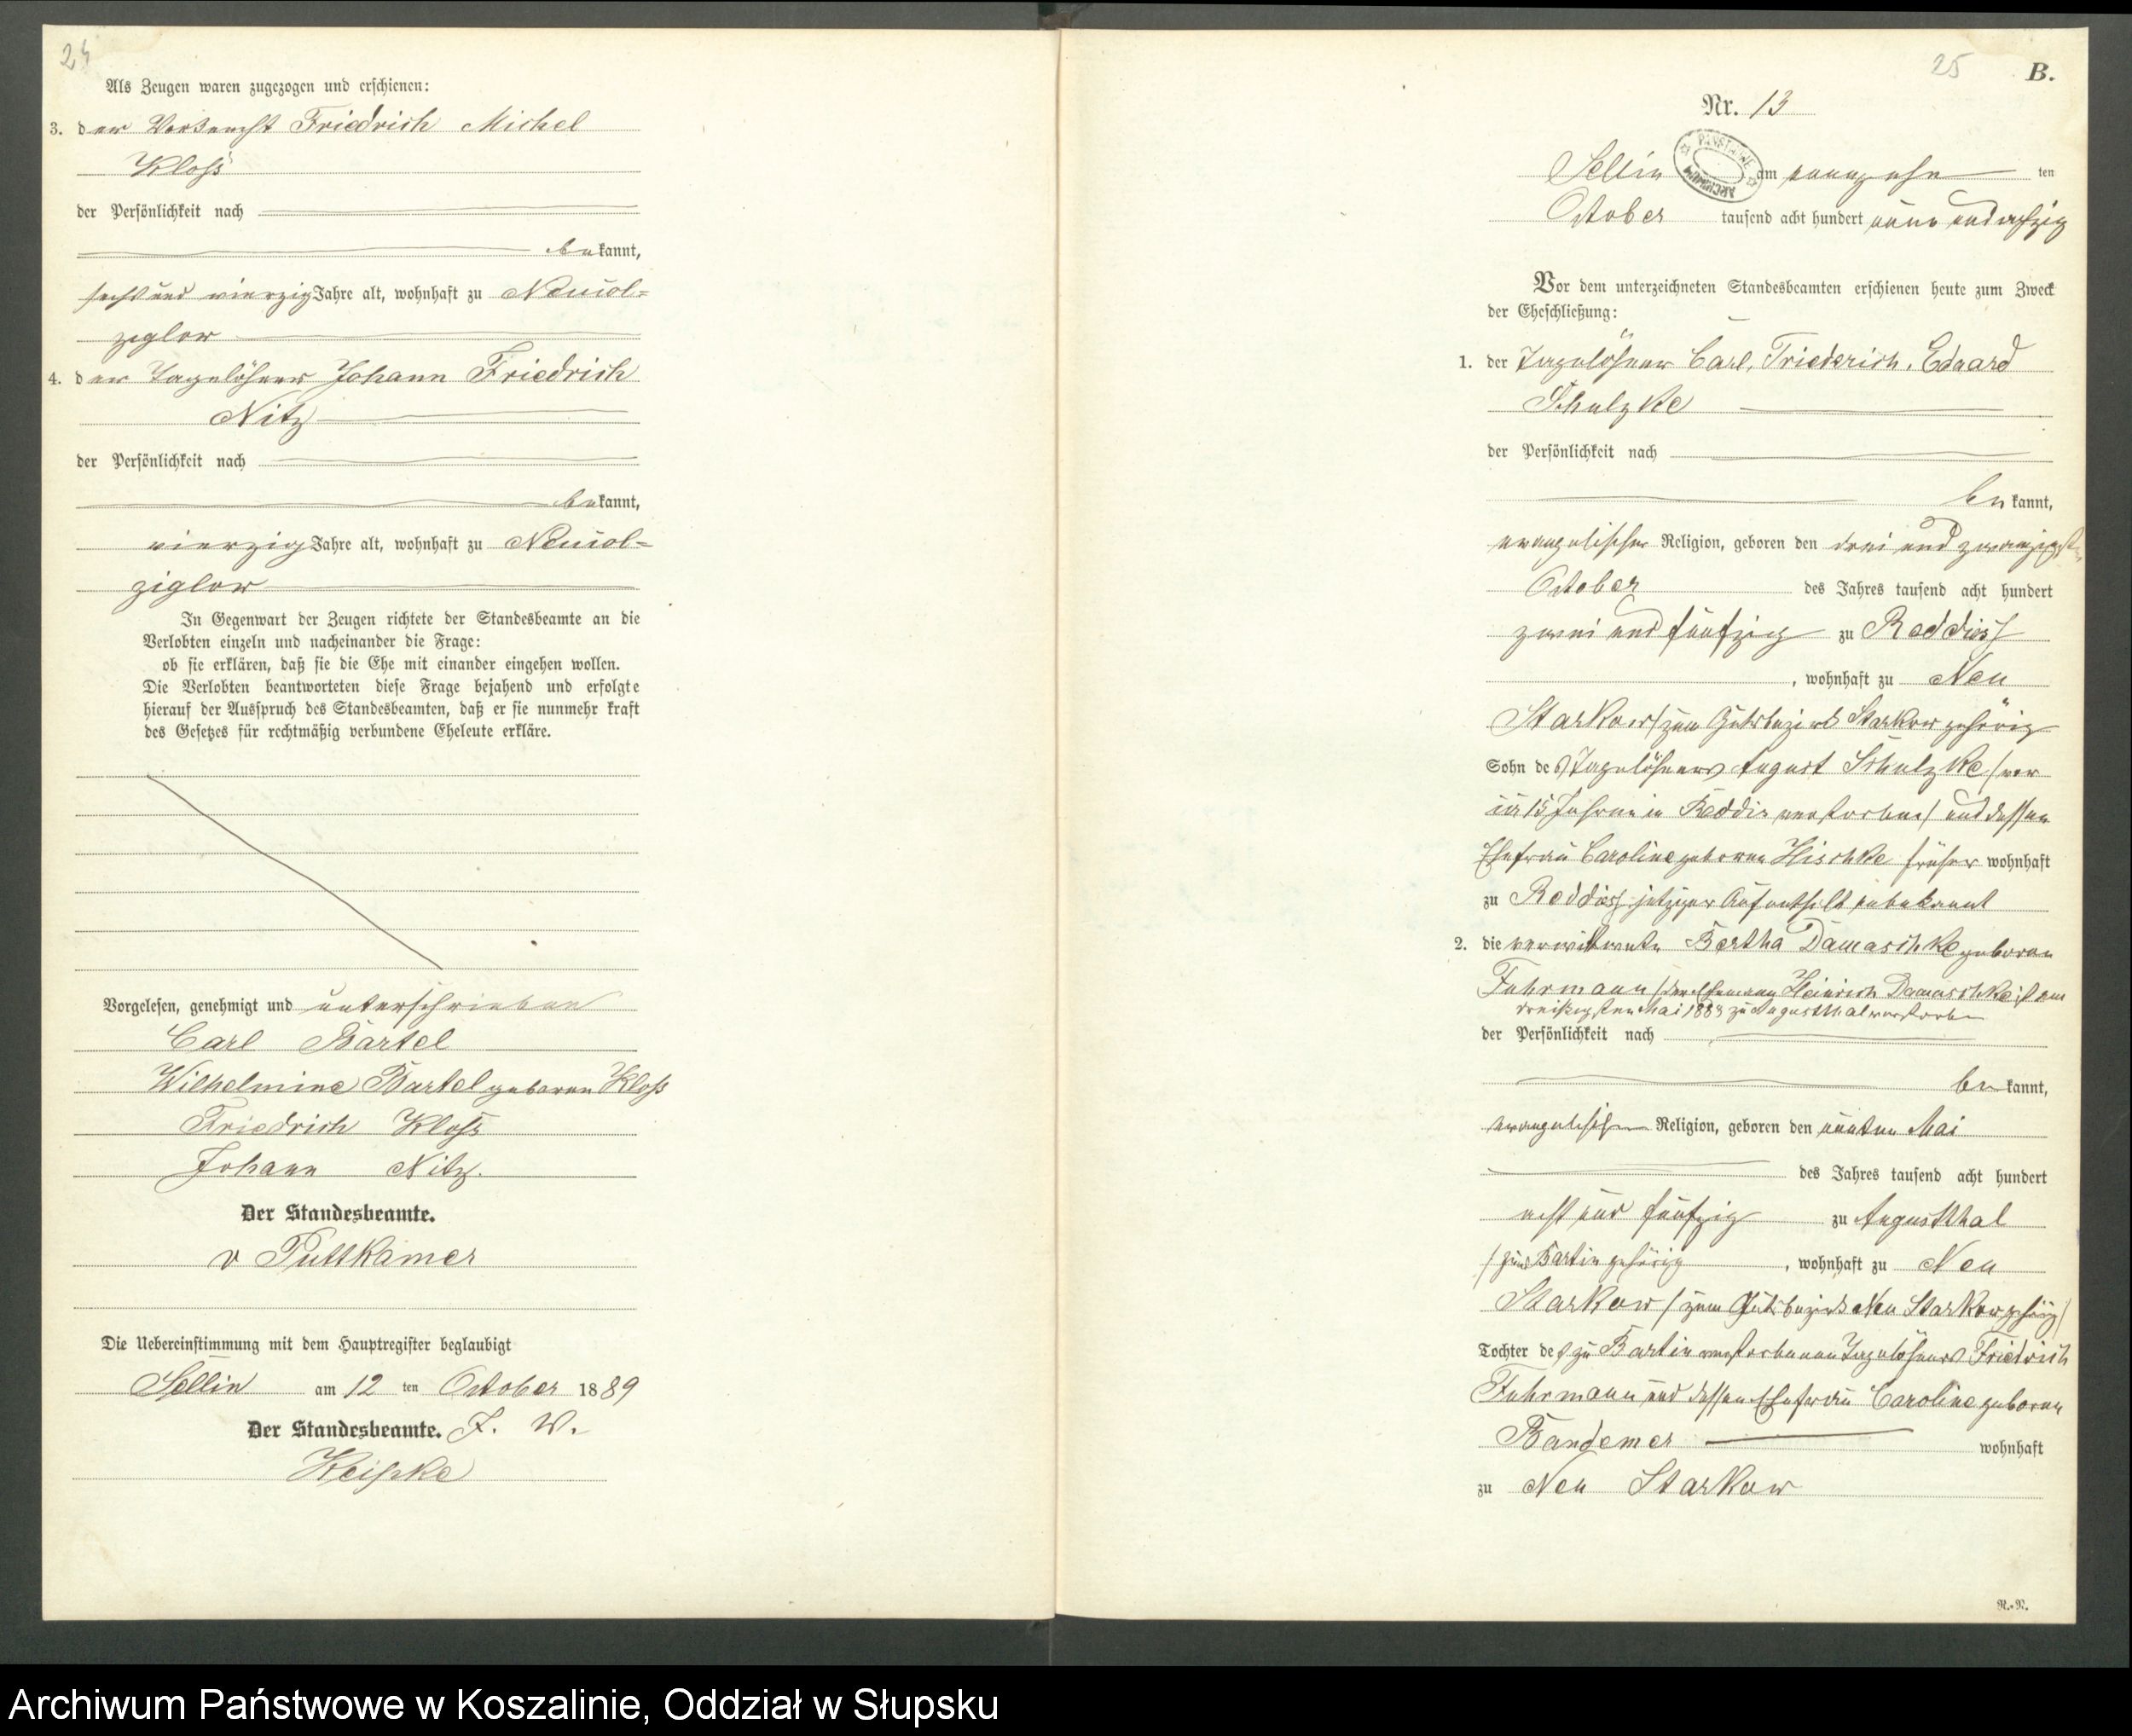 24
Als Zeugen waren zugezogen und erschienen:
3. der Friedrich Michel
Kloß
der Persönlichkeit nach
bekannt,
sechs und vierzig Jahre alt, wohnhaft zu Neuwol-
ziglow
4. der Tagelöhner Johann Friedrich
Nitz
der Persönlichkeit nach
bekannt,
vierzig Jahre alt, wohnhaft zu Neuwol-
ziglow
In Gegenwart der Zeugen richtete der Standesbeamte an die
Verlobten einzeln und nacheinander die Frage:
ob sie erklären, daß sie die Ehe mit einander eingehen wollen.
Die Verlobten beantworteten diese Frage bejahend und erfolgte
hierauf der Ausspruch des Standesbeamten, daß er sie nunmehr kraft
des Gesetzes für rechtmäßig verbundene Eheleute erkläre.
Vorgelesen, genehmigt und unterschrieben
Carl Bartel
Wilhelmine Bartel geboren Kloß
Friedrich Kloß
Johann Nitz.
Der Standesbeamte.
v Puttkamer
Die Uebereinstimmung mit dem Hauptregister beglaubigt
Sellin am 12 ten October 1889
Der Standesbeamte. J. V.
25
B.
Nr. 13
Sellin am neunzehn ten
October tausend acht hundert neun und achtzig
Vor dem unterzeichneten Standesbeamten erschienen heute zum Zweck
der Eheschließung:
1. der Tagelöhner Carl, Friederich, Eduard
Schulzke
der Persönlichkeit nach
be kannt,
evangelischer Religion, geboren den drei und zwanzigsten
October des Jahres tausend acht hundert
zwei und fünfzig zu Reddies
, wohnhaft zu Neu
Starkow / zum Gutsbezirk Starkow gehörig
Sohn des Tagelöhners August Schulzke / vor
15 Jahren in Reddis verstorben / und dessen
Ehefrau Caroline geboren Hischke früher wohnhaft
zu Reddies jetziger Aufenthalt unbekannt
2. die verwittwete Bertha Damaschke geboren
Fuhrmann / der Ehemann Heinrich Damaschke ist am
dreißigsten Mai 1883 zu Augustthal verstorben
der Persönlichkeit nach
be kannt,
evangelischer Religion, geboren den neunten Mai
des Jahres tausend acht hundert
acht und fünfzig zu Augustthal
/ zu Bartin gehörig , wohnhaft zu Neu
Starkow / zum Gutsbezirk Neu Starkow gehörig /
Tochter des zu Bartin verstorbenen Tagelöhners Friedrich
Fuhrmann und dessen Ehefrau Caroline geboren
Bandemer wohnhaft
zu Neu Starkow
R.-N.
Archiwum Państwowe w Koszalinie, Oddział w Słupsku